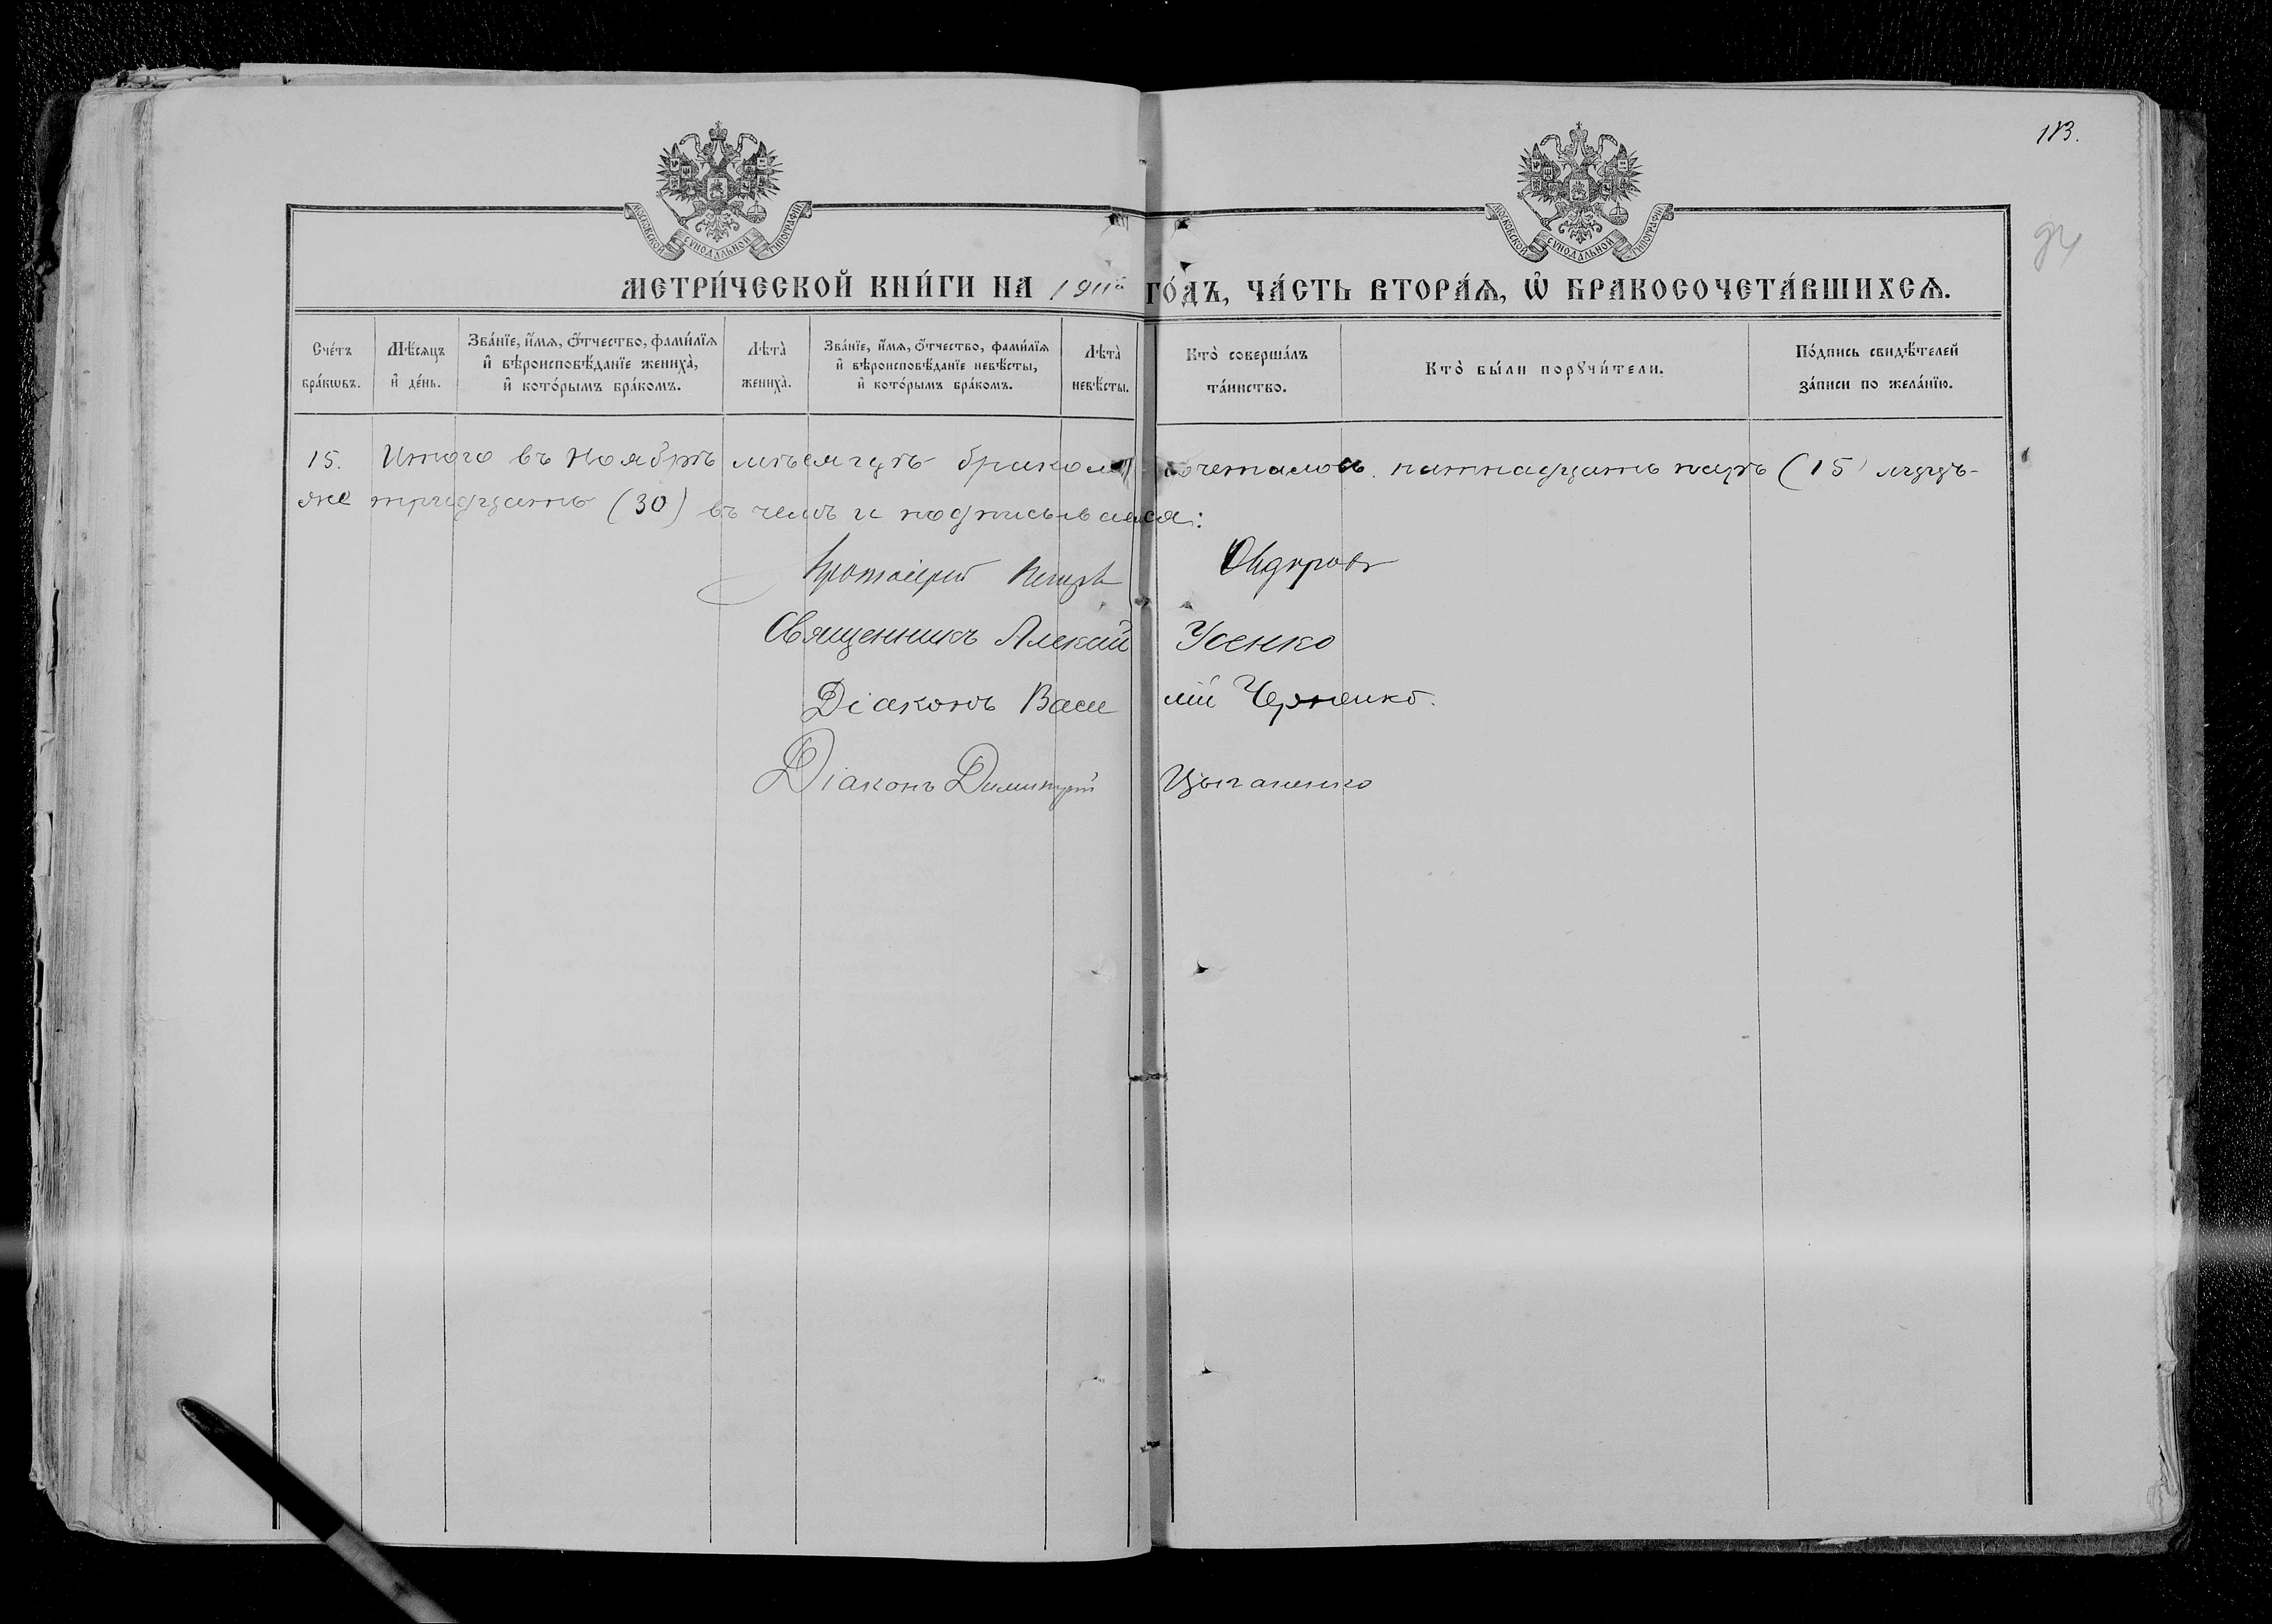 113.
94
МОСКОВСКОЙ СѴНОДАЛЬНОЙ ТИПОГРАФІИ
МОСКОВСКОЙ СѴНОДАЛЬНОЙ ТИПОГРАФІИ
МЕТРИ́ЧЕСКОЙ КНИ́ГИ НА 1911й ГО́ДЪ, ЧА́СТЬ ВТОРА́Ѧ, Ѡ҆ БРАКОСОЧЕТА́ВШИХСѦ.
Сче́тъ бра́кѡвъ.
Мѣ́сѧцъ и҆ де́нь.
Зва́нїе, и҆́мѧ, ѻ҆́тчество, фами́лїѧ и҆ вѣроисповѣ́данїе жениха̀, и҆ кото́рымъ бра́комъ.
Лѣта̀ жениха̀.
Зва́нїе, и҆́мѧ, ѻ҆́тчество, фами́лїѧ и҆ вѣроисповѣ́данїе невѣ́сты, и҆ кото́рымъ бра́комъ.
Лѣта̀ невѣ́сты.
Кто̀ соверша́лъ та́инство.
Кто̀ бы́ли порꙋчи́тели.
По́дпись свидѣ́телей за́писи по жела́нїю.
15. Итого въ Ноябрѣ мѣсяцѣ бракомъ сочеталось пятнадцать паръ (15) лицъ-
же тридцать (30) въ чемъ и подписываемся:
Протоіерей Петръ
Священникъ Алексій Усенко
Діаконъ Василій Черненко.
Діаконъ Димитрій Цыганенко